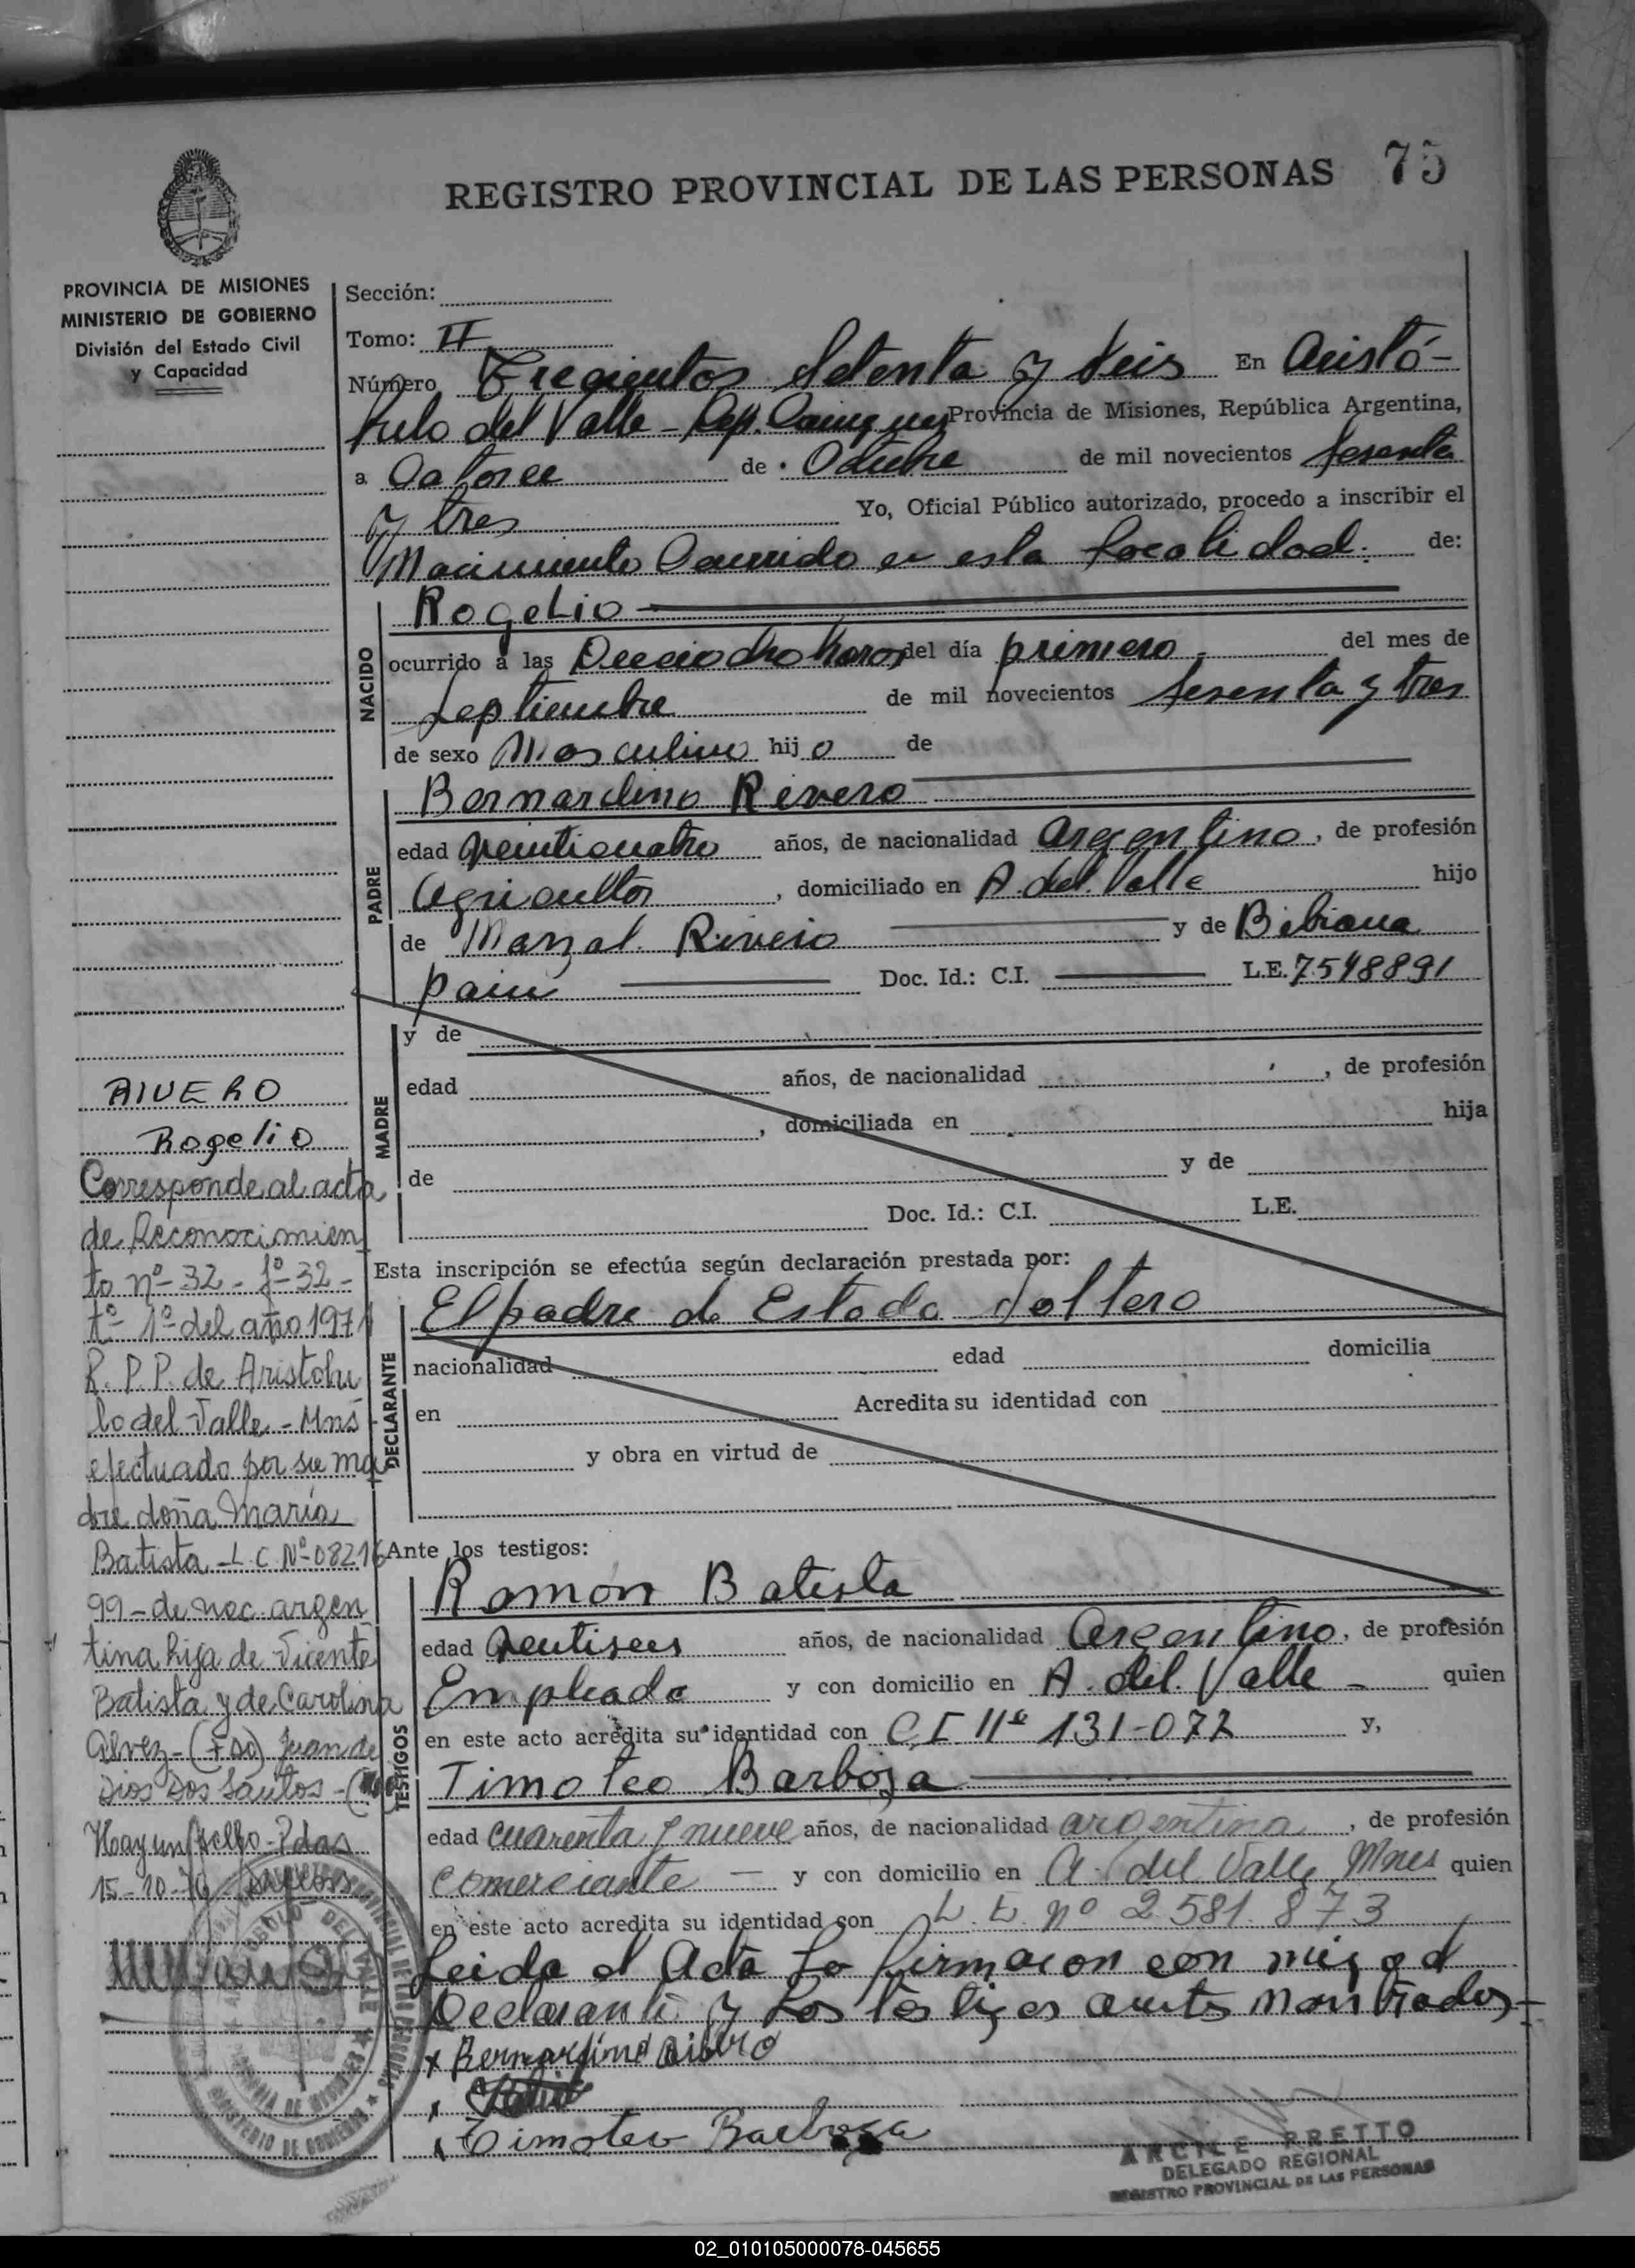 REGISTRO PROVINCIAL DE LAS PERSONAS 75
PROVINCIA DE MISIONES
MINISTERIO DE GOBIERNO
División del Estado Civil
y Capacidad
Sección:
Tomo: II
Número Trecientos Setenta y Seis En Aristó-
bulo del Valle - Dep. Cainguas Provincia de Misiones, República Argentina,
a Catorce de Octubre de mil novecientos sesenta
y tres Yo, Oficial Público autorizado, procedo a inscribir el
Nacimiento Ocurrido en esta Localidad. de:
NACIDO
Rogelio
ocurrido a las Dieciocho horas del día primero del mes de
Septiembre de mil novecientos sesenta y tres
de sexo Masculino hijo de
PADRE
Bernardino Rivero
edad Veinticuatro años, de nacionalidad Argentino, de profesión
Agricultor, domiciliado en A. del Valle hijo
de Marzal Rivero y de Bibiana
Pain Doc. Id.: C.I. L.E. 7548891
MADRE
y de
edad años, de nacionalidad , de profesión
, domiciliada en hija
de y de
Doc. Id.: C.I. L.E.
Esta inscripción se efectúa según declaración prestada por:
DECLARANTE
El padre de Estado Soltero
nacionalidad edad domicilia
en Acredita su identidad con
y obra en virtud de
Ante los testigos:
TESTIGOS
Ramón Batista
edad Ventiseis años, de nacionalidad Argentino, de profesión
Empleado y con domicilio en A. del Valle - quien
en este acto acredita su identidad con C.I Nº 131-077 y,
Timoteo Barboza
edad cuarenta y nueve años, de nacionalidad argentina, de profesión
comerciante - y con domicilio en A. del Valle Mnes quien
en este acto acredita su identidad con L.E. nº 2.581.873
Leida el Acta La firmaron con migo el
Declarante y Los testigos antes nombrados-
x Bernardino Rivero
Timoteo Barboza
ARCILE PRETTO
DELEGADO REGIONAL
REGISTRO PROVINCIAL DE LAS PERSONAS
RIVERO
Rogelio
Corresponde al acta
de Reconocimien
to nº 32 - fº 32 -
tº 1º del año 1971
R. P. P. de Aristobu
lo del Valle - Mns
efectuado por su ma
dre doña María
Batista - L.C. Nº 08216
99 - de nac. argen
tina hija de Vicente
Batista y de Carolina
Alvez - (Fdo) Juan de
Dios Dos Santos -
Hay un sello - Pdas
15-10-76
02_010105000078-045655